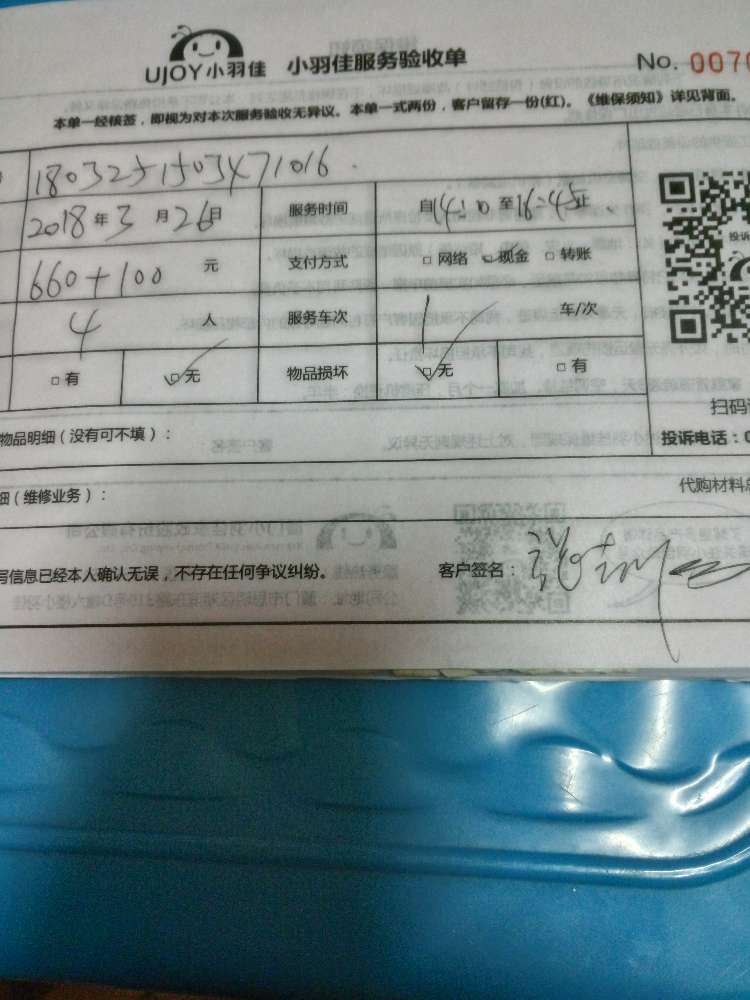 UJOY小羽佳 小羽佳服务验收单 No. 0070
本单一经核签，即视为对本次服务验收无异议。本单一式两份，客户留存一份(红)。《维保须知》详见背面。
1803251503471016
2018年3月26日 服务时间 自14:10至16:45止
660+100 元 支付方式 □ 网络 □ 现金 □ 转账
4 人 服务车次 1 车/次
□ 有 □ 无 物品损坏 □ 无 □ 有
投诉
扫码
物品明细（没有可不填）： 投诉电话：0
细（维修业务）： 代购材料总
写信息已经本人确认无误，不存在任何争议纠纷。 客户签名：